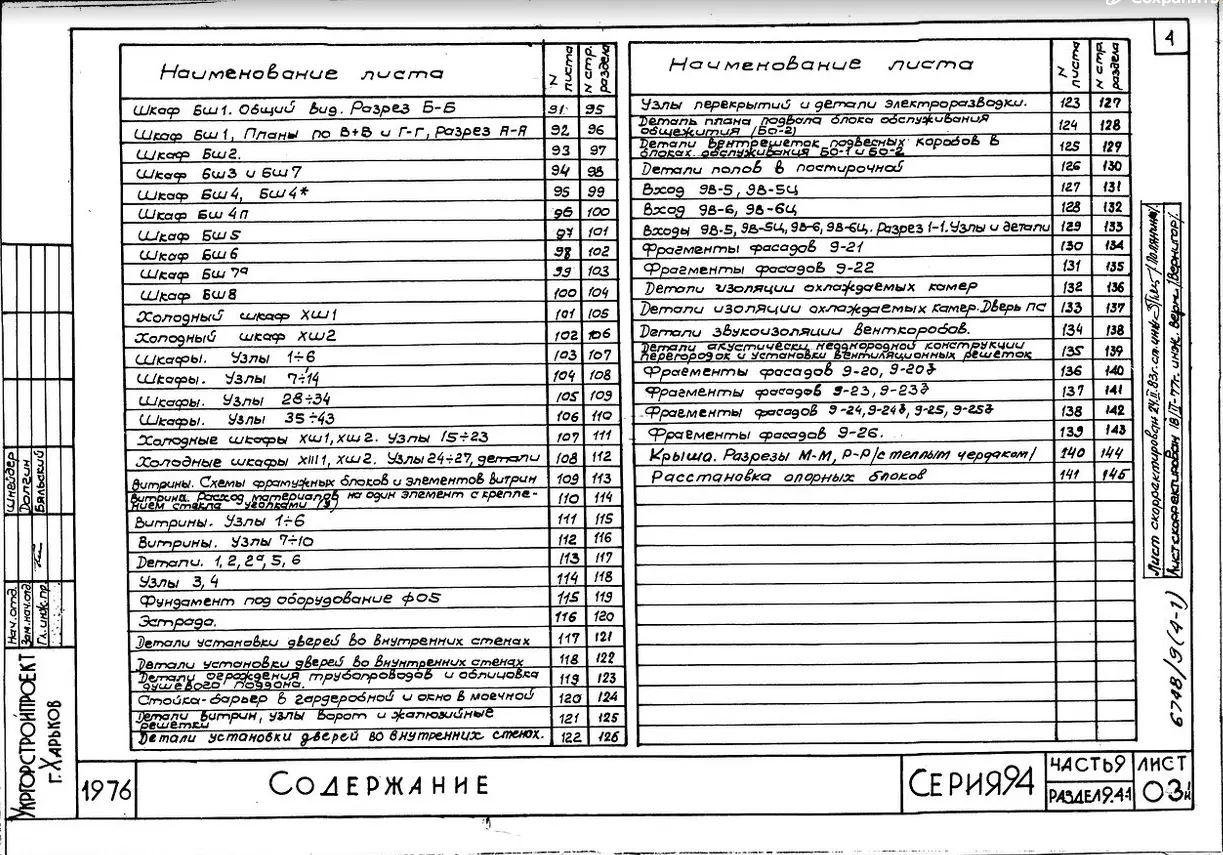 Сохранить
4
Наименование листа N листа N стр. раздела
Шкаф БШ1. Общий вид. Разрез Б-Б 91 95
Шкаф БШ1, Планы по В+В и Г-Г, Разрез А-А 92 96
Шкаф БШ2. 93 97
Шкаф БШ3 и БШ7 94 98
Шкаф БШ4, БШ4* 95 99
Шкаф БШ4п 96 100
Шкаф БШ5 97 101
Шкаф БШ6 98 102
Шкаф БШ7а 99 103
Шкаф БШ8 100 104
Холодный шкаф ХШ1 101 105
Холодный шкаф ХШ2 102 106
Шкафы. Узлы 1÷6 103 107
Шкафы. Узлы 7÷14 104 108
Шкафы. Узлы 28÷34 105 109
Шкафы. Узлы 35÷43 106 110
Холодные шкафы ХШ1, ХШ2. Узлы 15÷23 107 111
Холодные шкафы ХШ1, ХШ2. Узлы 24÷27, детали 108 112
Витрины. Схемы фрамужных блоков и элементов витрин 109 113
Витрина. Расход материалов на один элемент с крепле-
нием стекла уголками (3) 110 114
Витрины. Узлы 1÷6 111 115
Витрины. Узлы 7÷10 112 116
Детали. 1, 2, 2а, 5, 6 113 117
Узлы 3, 4 114 118
Фундамент под оборудование ФО5 115 119
Эстрада. 116 120
Детали установки дверей во внутренних стенах 117 121
Детали установки дверей во внунтренних стенах 118 122
Детали ограждения трубопроводов и облицовка
душевого поддона. 119 123
Стойка-барьер в гардеробной и окно в моечной 120 124
Детали витрин, узлы ворот и жалюзийные
решетки 121 125
Детали установки дверей во внутренних стенах. 122 126
Наименование листа N листа N стр. раздела
Узлы перекрытий и детали электроразводки. 123 127
Деталь плана подвала блока обслуживания
общежития (БО-2) 124 128
Детали вентрешеток подвесных коробов в
блоках обслуживания БО-1 и БО-2 125 129
Детали полов в постирочной 126 130
Вход 9В-5, 9В-5Ц 127 131
Вход 9В-6, 9В-6Ц 128 132
Входы 9В-5, 9В-5Ц, 9В-6, 9В-6Ц. Разрез 1-1. Узлы и детали 129 133
Фрагменты фасадов 9-21 130 134
Фрагменты фасадов 9-22 131 135
Детали изоляции охлаждаемых камер 132 136
Детали изоляции охлаждаемых камер. Дверь ПС 133 137
Детали звукоизоляции венткоробов. 134 138
Детали акустически неоднородной конструкции
перегородок и установки вентиляционных решеток 135 139
Фрагменты фасадов 9-20, 9-20д 136 140
Фрагменты фасадов 9-23, 9-23д 137 141
Фрагменты фасадов 9-24, 9-24д, 9-25, 9-25д 138 142
Фрагменты фасадов 9-26. 139 143
Крыша. Разрезы М-М, Р-Р /с теплым чердаком/ 140 144
Расстановка опорных блоков 141 145
Лист скорректирован 24.II.83г. ст. инж.
Лист скорректирован 18/III-77г. инж. /Вернигор/.
6748/9 (4-1)
Шнейдер
Долгин
Бяльский
Нач.отд.
Зам.нач.отд
Гл.инж.пр.
УКРГОРСТРОЙПРОЕКТ
г. ХАРЬКОВ
1976
СОДЕРЖАНИЕ
СЕРИЯ 94
ЧАСТЬ 9
РАЗДЕЛ 9.4-1
ЛИСТ
03и